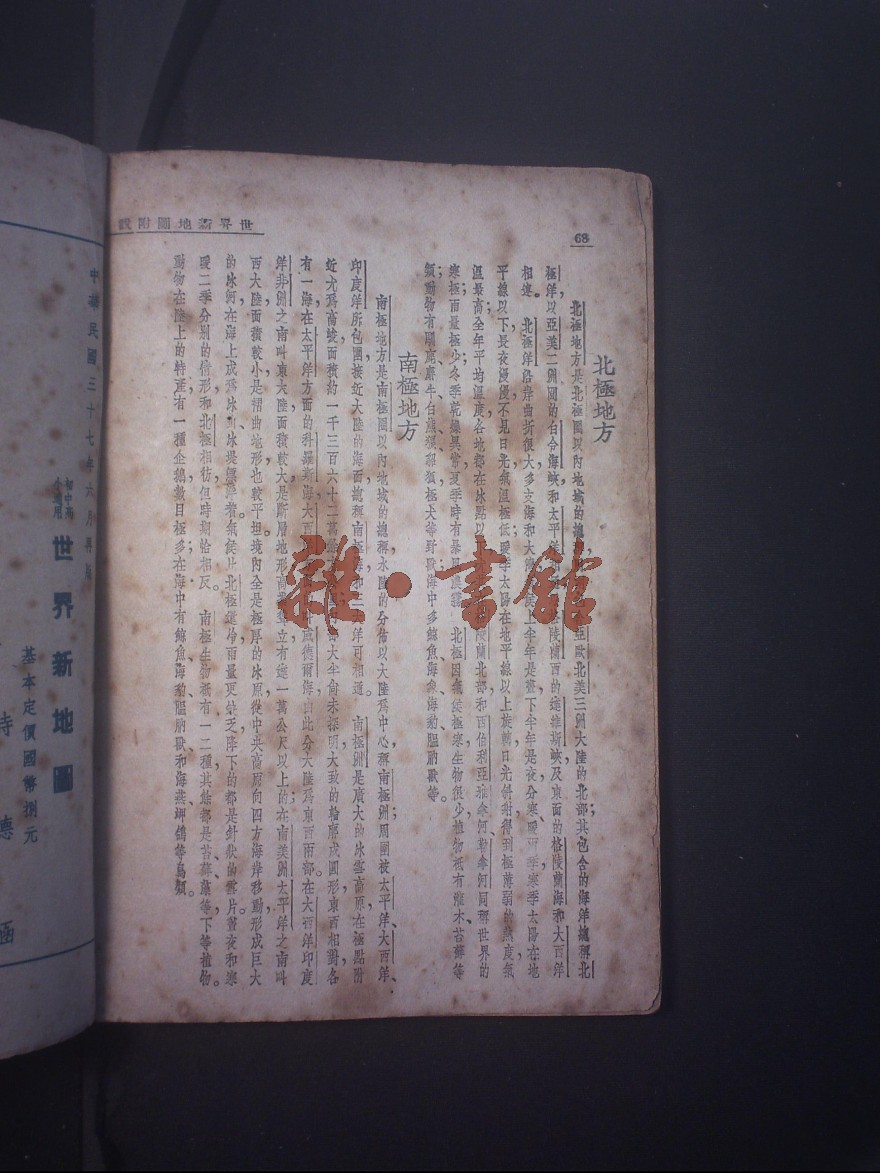 世界新地圖附說
68
北極地方
北極地方是北極圈以內地域的總稱 亞歐北美三洲大陸的北部其包含的海洋總稱北
極洋，以亞美二洲間的白令海峽和太平洋 格陵蘭西的達維斯峽及東面的格陵蘭海和大西洋
相連。北極洋沿岸曲折很大多支海和大灣氣候上半年是晝下半年是夜，分寒暖兩季寒季太陽在地
平線以下長夜漫漫不見日光氣溫極低；暖季太陽在地平線以上旋轉日光斜射得到極薄弱的熱度氣
溫最高全年平均溫度各地都在冰點以 格陵蘭北部和西伯利亞雅拿河勒拿河同稱世界的
寒極雨量極少；冬季乾燥異常夏季時有暴風濃霧。北極因氣候極寒生物很少植物祇有灌木苔蘚等
類；動物有馴鹿麝牛白熊 狐極犬等野獸海中多鯨魚海魚海動膃肭獸等。
南極地方
南極地方是南極圈以內地域的總稱水陸的分佈以大陸爲中心稱南極洲周圍被太平洋大西洋、
印度洋所包圍接近大陸的海面總稱南極海和三大洋可相通。南極洲是廣大的冰雪高原在極點附
近尤爲高峻面積約一千三百六十二萬餘 部大半尙未探明大致的輪廓成圓形東西相對各
有一海在太平洋方面的科羅斯海大西 叫威德爾海由此分大陸爲東西兩部在大西洋印度
洋非洲之南叫東大陸面積較大是斷層地形高 立有達一萬公尺以上的；在南美洲太平洋之南叫
西大陸面積較小是褶曲地形也較平坦境內全是極厚的冰原從中央高原向四方海岸移動形成巨大
的冰河在海上成爲冰山冰是飄浮着氣候比北極還冷雨量更缺乏降下的都是針狀的雪片晝夜和寒
暖二季分別的情形和北極相彷但時期恰相反。南極生物祇有一二種其餘都是苔蘚藻等下等植物。
動物在陸上的特產有一種企鵝數目極多；在海中有鯨魚海動膃肭獸和海燕岬鴿等鳥類。
雜·書館
中華民國三十七年六月再版
初中高小適用
世界新地圖
基本定價國幣捌元